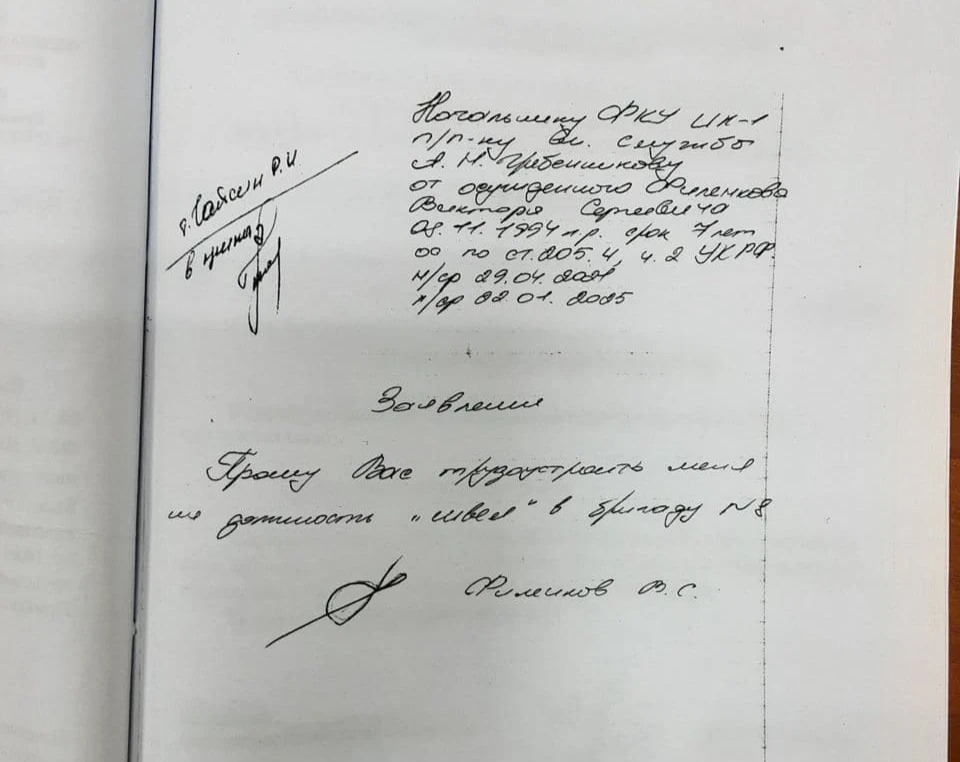 Начальнику ФКУ ИК-1
п/п-ку вн. службы
А. Н. Гребенщикову
от осужденного Филенкова
Виктора Сергеевича
08.11.1994 г.р. срок 7 лет
по ст. 205.4, ч. 2 УК РФ.
н/ср 29.04.2021
к/ср 22.01.2025
Гайсин Р.И.
в приказ
Заявление
Прошу Вас трудоустроить меня
на должность „швея" в бригаду N8
Филинков В. С.